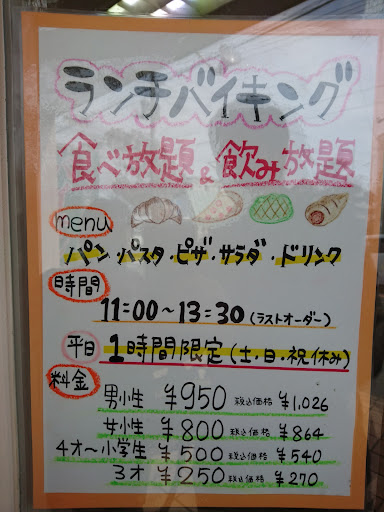 ランチバイキング
食べ放題 & 飲み放題
menu
パン・パスタ・ピザ・サラダ・ドリンク
時間
11:00~13:30(ラストオーダー)
平日 1時間限定(土・日・祝休み)
料金
男小生 ¥950 税込価格 ¥1,026
女小生 ¥800 税込価格 ¥864
4才~小学生 ¥500 税込価格 ¥540
3才 ¥250 税込価格 ¥270